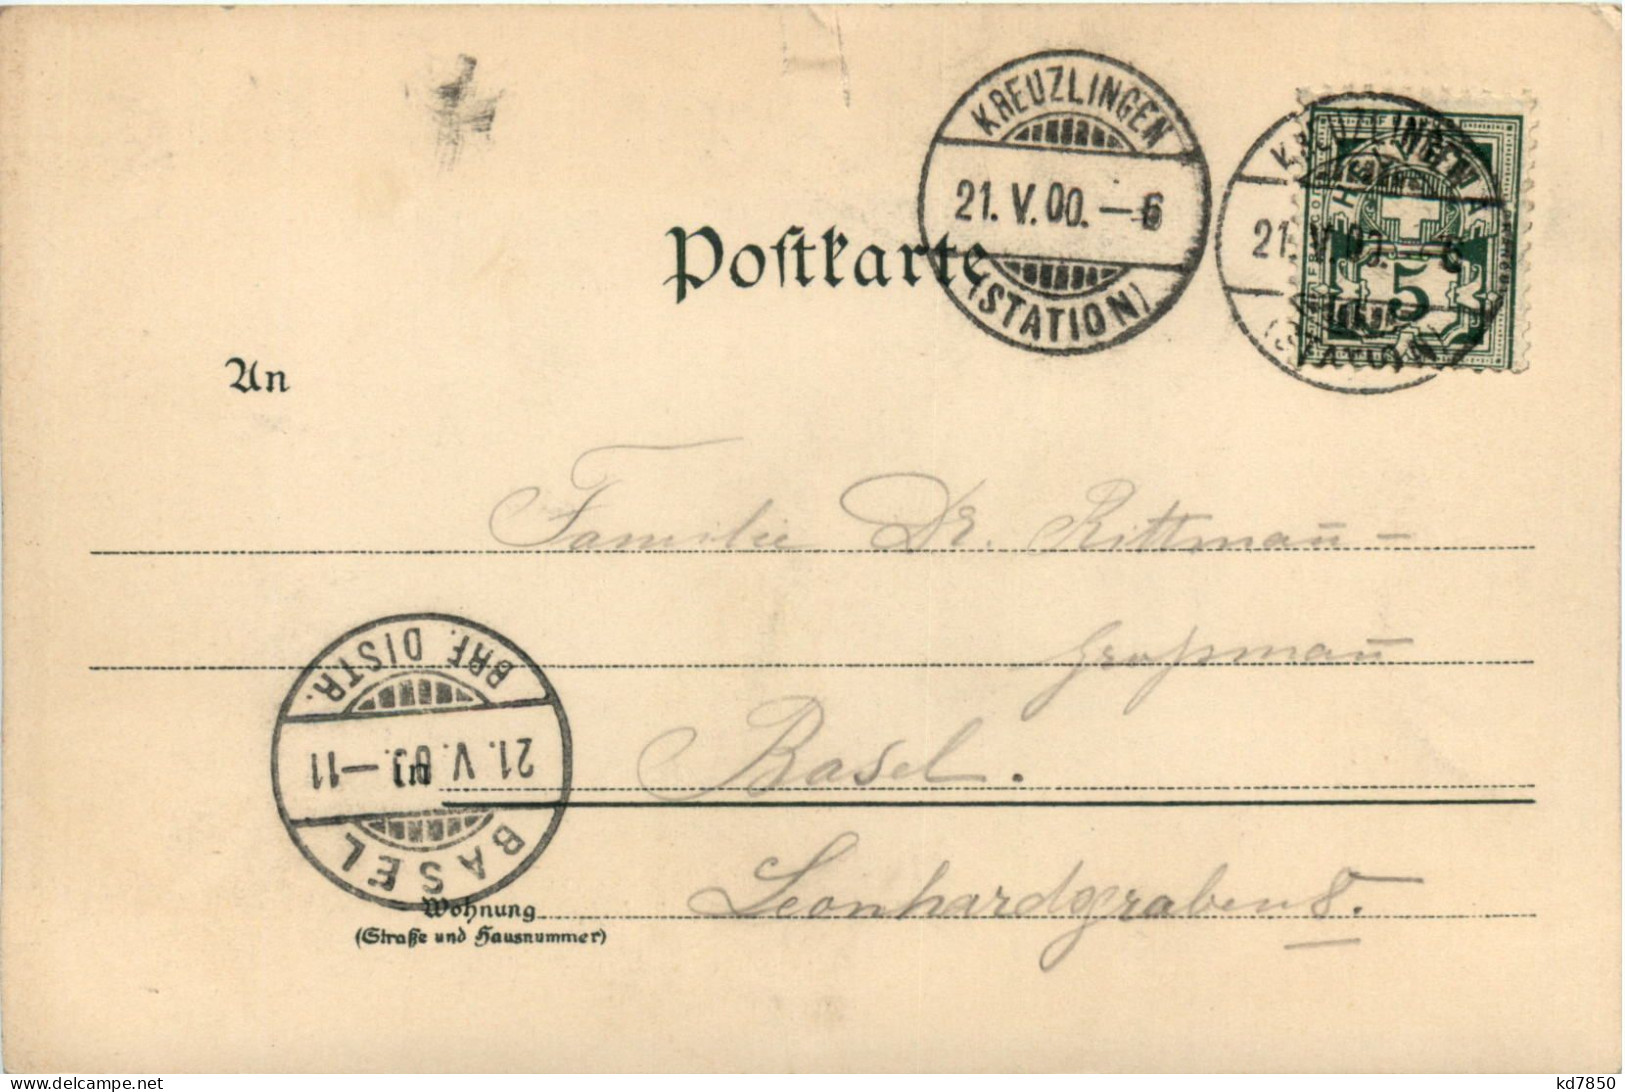 KREUZLINGEN
21. V. 00. – 6
(STATION)
KREUZLINGEN
21. V. 00. – 6
(STATION)
FRANCO
HELVETIA
5
Postkarte
An
Familie Dr. Rittmañ –
Großmañ
BRF. DISTR.
21. V. 00. – 11
BASEL
in Basel.
Wohnung Leonhardsgraben 8.
(Straße und Hausnummer)
kd7850